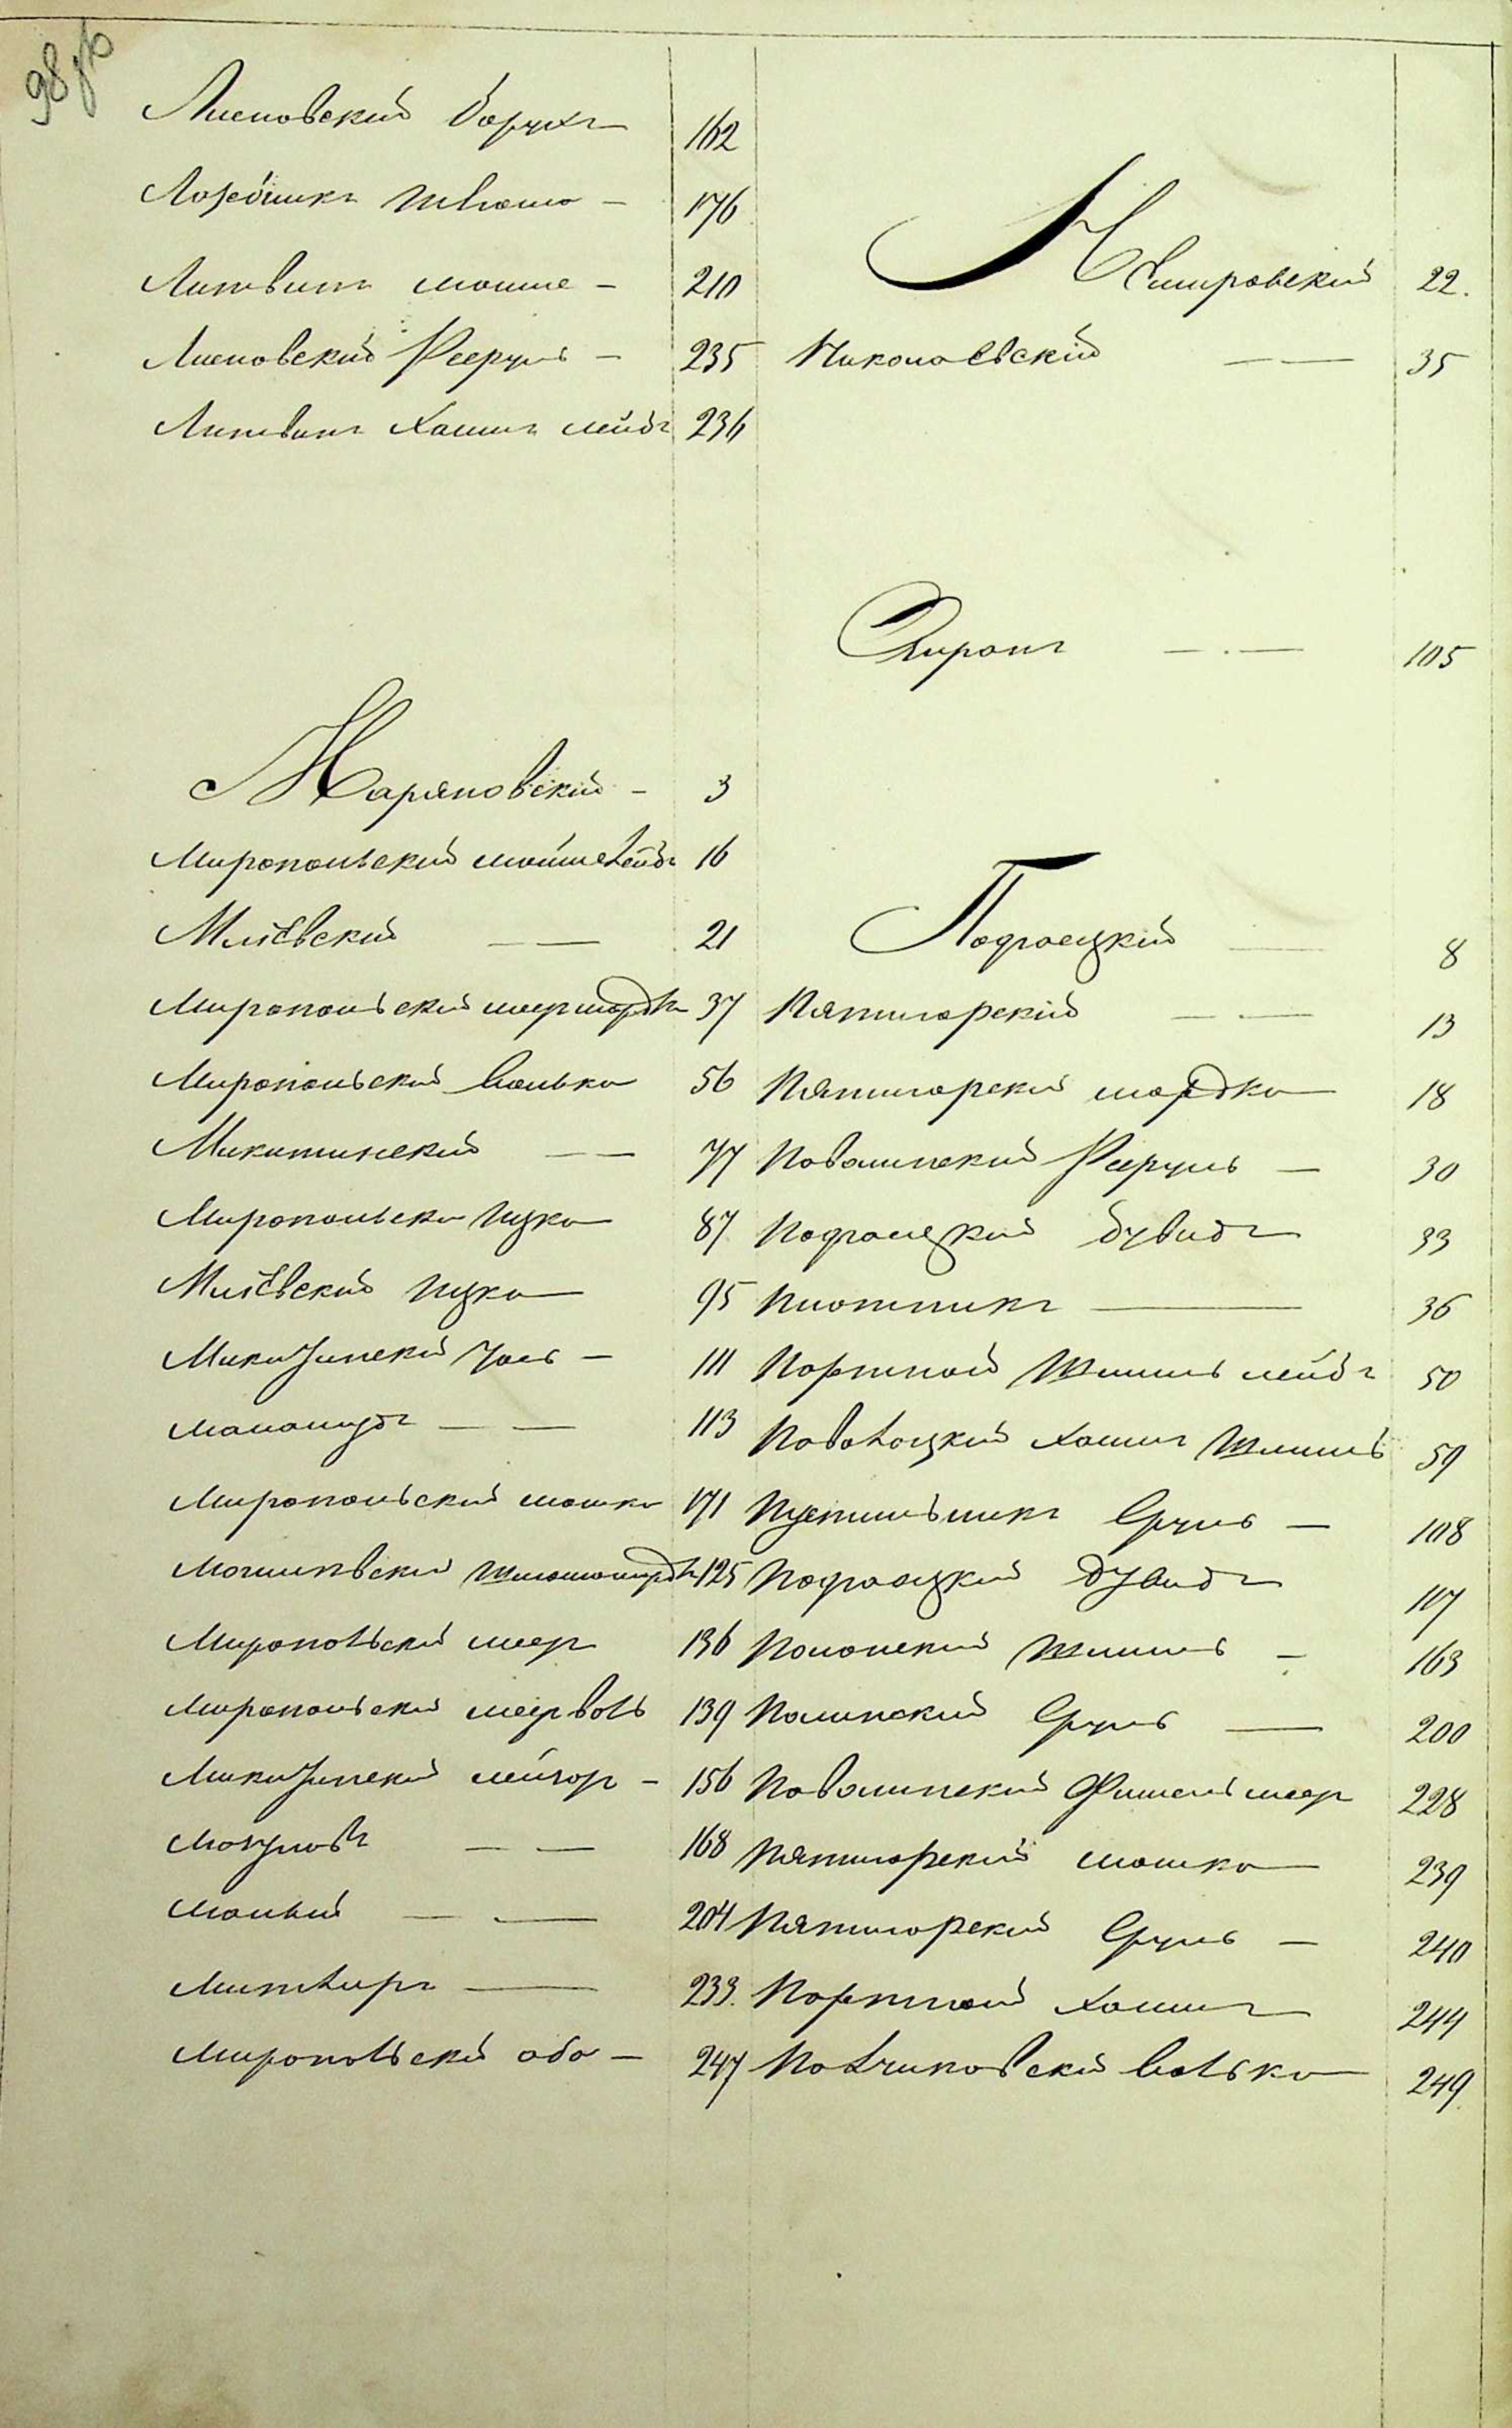 98 об
Лисновский Борухъ 162
Лозебникъ Шлиомо – 176
Литвинъ Мошше – 210
Лисновский Фсеруль – 235
Литвинъ Хаимъ Лейбъ 236
Маряновский – 3
Миропольский Мойше Лейбъ 16
Милiевский — 21
Миропольский Меер Мордко 37
Миропольский Волько 56
Микитинский — 77
Миропольски Ицко 87
Милiевский Ицко 95
Микитински Усель – 111
Маламудъ — 113
Миропольский Мошко 171
Могилевски Шлиома Мордк 125
Миропольский Меер 136
Миропольский Меер Воль 139
Микитинский Лейзор – 156
Мозуловъ — 168
Малый — 204
Митлиръ — 233.
Миропольский Або – 247
Немировский 22.
Николаевскiй — 35
Окиронъ — 105
Подгаецкiй — 8
Пятигорскiй — 13
Пятигорски Мордко 18
Поволинский Фсеруль – 30
Подгаецкий Дувидъ 33
Плотникъ — 36
Портной Шмиль Лейбъ 50
Поволоцкий Хаимъ Шмиль 59
Пустильникъ Сруль – 108
Подгаецкий Дувидъ 117
Полонский Шмиль – 163
Полинский Сруль — 200
Поволинский Фишель Меер 228
Пятигорский Мошко 239
Пятигорский Сруль – 240
Портной Хаимъ 244
Полчиковски Волько 249